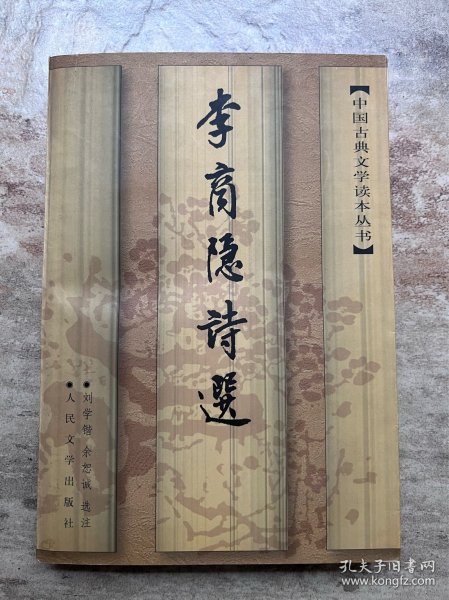 【中国古典文学读本丛书】
李商隐詩選
●刘学锴 余恕诚 选注
●人民文学出版社
孔夫子旧书网
www.kongfz.com